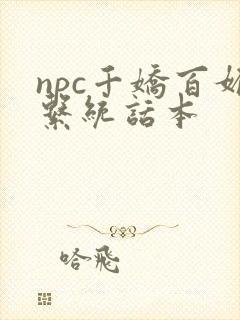 npc千嬌百媚
繫統話本
哈飛